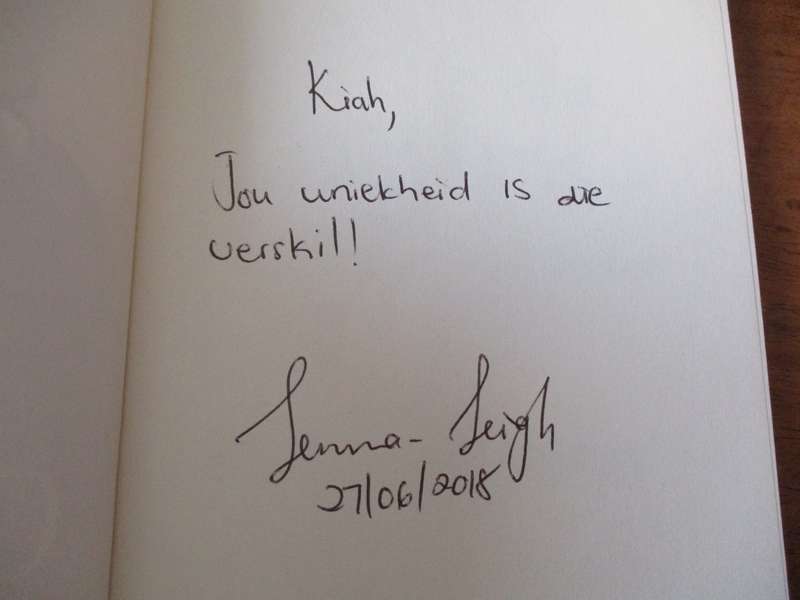 Kiah,
Jou uniekheid is die
verskil!
Jenna-Leigh
27/06/2018